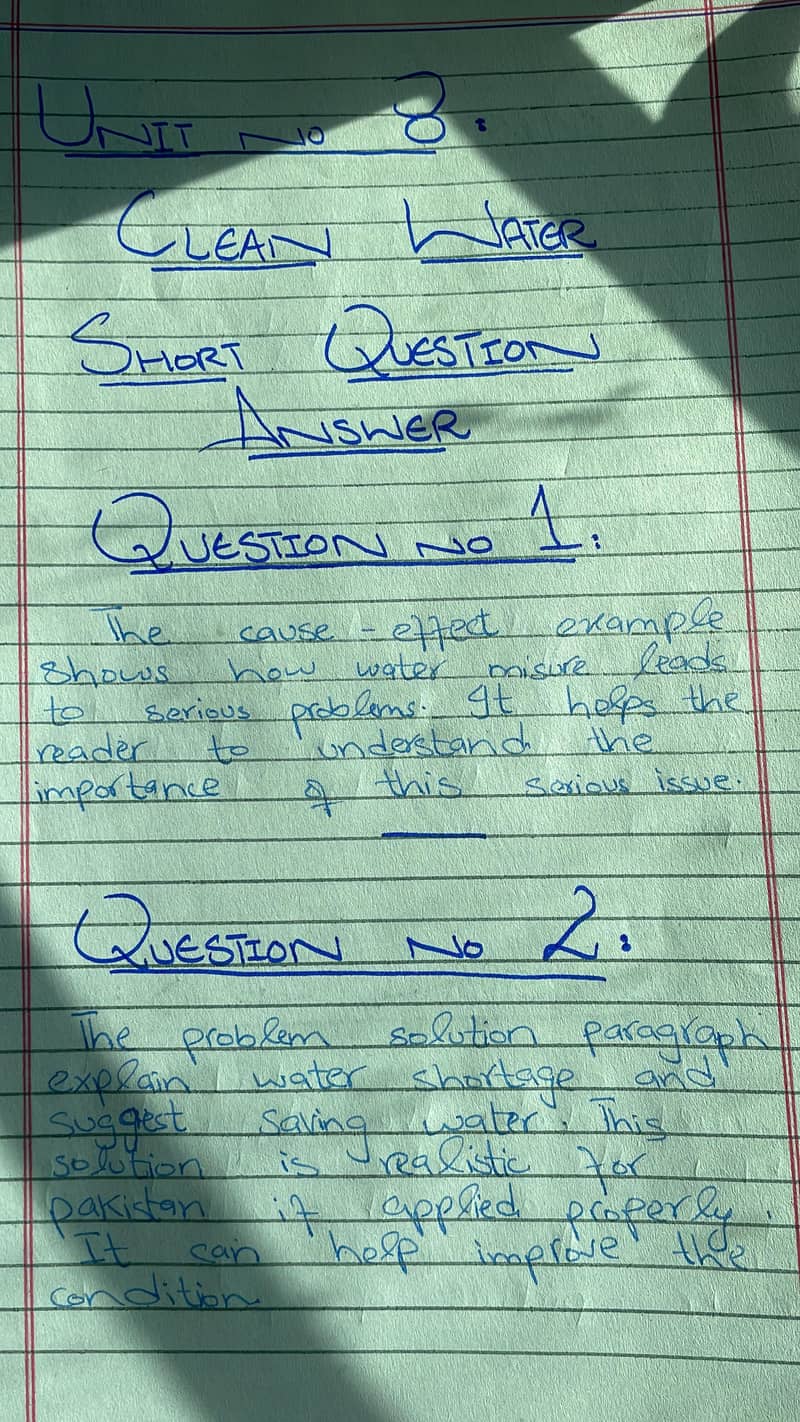 UNIT NO 8:
CLEAN WATER
SHORT QUESTION
ANSWER
QUESTION NO 1:
The cause-effect example
shows how water misure leads
to serious problems. It helps the
reader to understand the
importance of this serious issue.
QUESTION NO 2:
The problem solution paragraph
explain water shortage and
suggest saving water. This
solution is realistic for
pakistan if applied properly.
It can help improve the
condition